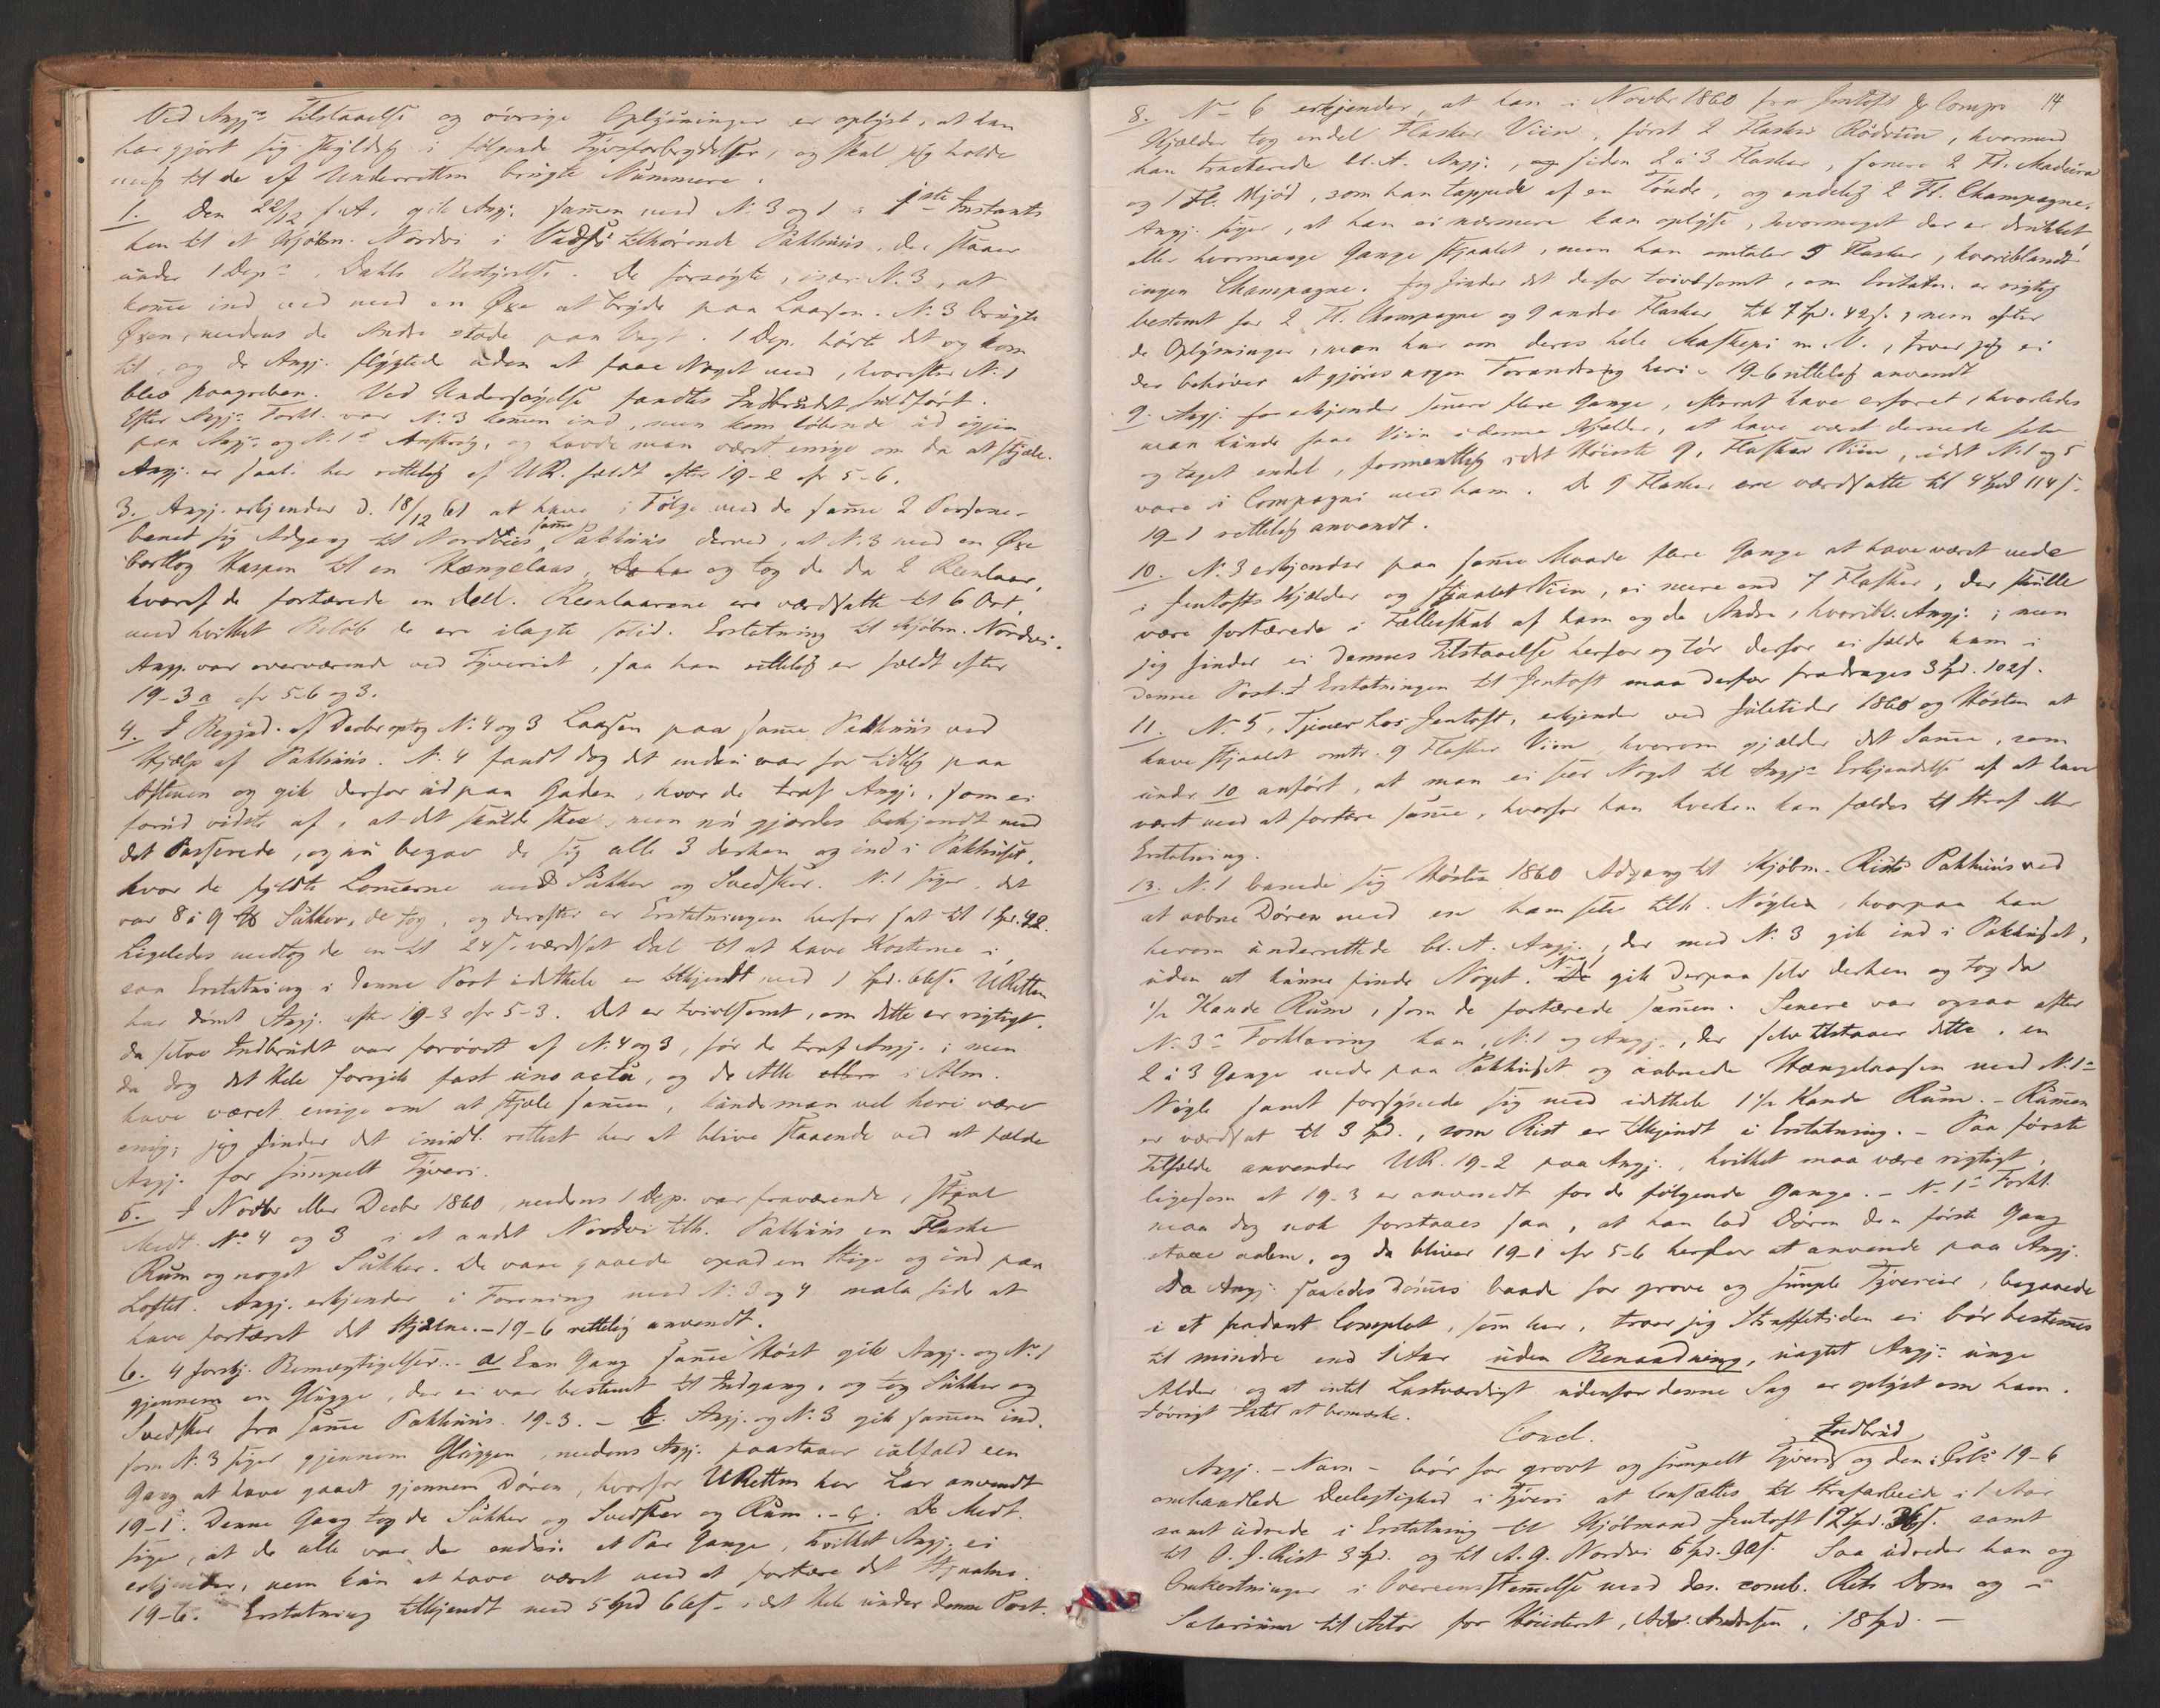 Ved Angj.s Tilstaaelse og øvrige Oplysninger er oplyst, at han
har gjort sig skyldig i følgende Tyvsforbrydelser, og skal jeg holde
mig til de af Underretten brugte Nummere.
1. Den 22/12 f. A. gik Angj. sammen med N. 3 og 1 i 1ste Instants
hen til et Kjøbm. Nordvi i Vadsø tilhørende Pakhuus, der staaer
under 1 Dep.s, Dahls Bestyrelse. De forsøgte, især N. 3, at
komme ind ved med en Øxe at bryde paa Laasen. N. 3 brugte
Øxen, medens de Andre stode paa Vagt. 1 Dep. hørte det og kom
til, og de Angj. flygtede uden at faae Noget med, hvorefter N. 1
blev paagreben. Ved Undersøgelse fandtes Indbrudet fuldført.
Efter Angj.s Forkl. var N. 3 kommen ind, men kom løbende ud igjen
paa Angj.s og N. 1s Anskrig, og havde man været enige om da at stjæle.
Angj. er saal. her rettelig af UR. fældt efter 19-2 cfr 5-6.
3. Angj. erkjender d. 18/12 61 at have i Følge med de samme 2 Personer
banet sig Adgang til Nordvies samme Pakhuus derved, at N. 3 med en Øxe
borttog Haspen til en Hængelaas, og tog de da 2 Reenlaar,
hvoraf de fortærede en Deel. Reenlaarene ere værdsatte til 6 Ort,
med hvilket Beløb de ere ilagte solid. Erstatning til Kjøbm. Nordvi.
Angj. var overværende ved Tyveriet, saa han rettelig er fældt efter
19-3 a cfr 5-6 og 3.
4. I Begynd. af Decbr optog N. 4 og 3 Laasen paa samme Pakhuus ved
Hjælp af Pakhuus. N. 4 fandt dog det endnu var for tidlig paa
Aftenen og gik derfor ud paa Gaden, hvor de traf Angj., som ei
forud vidste af, at det skulde skee, men nu gjordes bekjendt med
det Passerede, og nu begav de sig alle 3 derhen og ind i Pakhuset,
hvor de fyldte Lommerne med Sukker og Svedsker. N. 1 siger, det
var 8 à 9 ℔ Sukker, de tog, og derefter er Erstatningen herfor sat til 1 Spd. 42.
Ligeledes medtog de en til 24 s. værdsat Dal til at have Kosterne i,
saa Erstatning i denne Post idethele er tilkjendt med 1 Spd. 66 s. URetten
har dømt Angj. efter 19-3 cfr 5-3. Det er tvivlsomt, om dette er rigtigt,
da selve Indbrudet var forøvet af N. 4 og 3, før de traf Angj.; men
da dog det Hele foregik fast uno actu, og de Alle i Alm.
have været enige om at stjæle sammen, kunde man vel heri være
enig; jeg finder det imidl. rettest her at blive staaende ved at fælde
Angj. for simpelt Tyveri.
5. I Novbr eller Decbr 1860, medens 1 Dep. var fraværende, stjal
Medt. No 4 og 3 i et andet Nordvi tilh. Pakhuus en Flaske
Rum og noget Sukker. De vare gaaede opad en Stige og ind paa
Loftet. Angj. erkjender i Forening med N. 3 og 4 mala fide at
have fortæret det Stjaalne. – 19-6 rettelig anvendt.
6. 4 forskj. Bemægtigelser. – a Een Gang samme Høst gik Angj. og N. 1
gjennem en Glugge, der ei var bestemt til Indgang, og tog Sukker og
Svedsker fra samme Pakhuus. 19-3. – b. Angj. og N. 3 gik sammen ind,
som N. 3 siger gjennem Gluggen, medens Angj. paastaaer ialfald een
Gang at have gaaet gjennem Døren, hvorfor URetten her har anvendt
19-1. Denne Gang tog de Sukker og Svedsker og Rum. – c. De Medt.
siger, at de alle var der endnu et Par Gange, hvilket Angj. ei
erkjender, men kun at have været med at fortære det Stjaalne.
19-6. Erstatning tilkjendt med 5 Spd 66 s. i det Hele under denne Post.
14
8. N– 6 erkjender, at han i Novbr 1860 fra Jentoft & Comps
Kjælder tog endel Flasker Viin, først 2 Flasker Rødviin, hvormed
han tracterede bl. A. Angj., og siden 2 à 3 Flasker, senere 2 Fl. Madeira
og 1 Fl. Mjød, som han tappede af en Tønde, og endelig 2 Fl. Champagne.
Angj. siger, at han ei nærmere kan oplyse, hvormeget der er drukket,
eller hvormange Gange stjaalet, men han omtaler 9 Flasker, hvoriblandt
ingen Champagne. Jeg finder det derfor tvivlsomt, om Erstatn. er rigtig
bestemt for 2 Fl. Champagne og 9 andre Flasker til 7 Spd. 42 s., men efter
de Oplysninger, man har om deres hele Maskepi m. V., troer jeg ei
der behøver at gjøres nogen Forandring heri. 19-6 rettelig anvendt
9. Angj. erkjender senere flere Gange, efterat have erfaret, hvorledes
man kunde faae Viin i denne Kjælder, at have været dernede selv
og taget endel, formentlig i det Høieste 9, Flasker Viin, idet N. 1 og 5
vare i Compagni med ham. De 9 Flasker ere værdsatte til 4 Spd 114 s.
19-1 rettelig anvendt.
10. N. 3 erkjender paa samme Maade flere Gange at have været nede
i Jentofts Kjælder og stjaalet Viin, ei mere end 7 Flasker, der skulle
være fortærede i Fællesskab af ham og de Andre, hvoribl. Angj.; men
jeg finder ei Dennes Tilstaaelse herfor og tør derfor ei fælde ham i
denne Post. I Erstatningen til Jentoft maa derfor fradrages 3 Spd. 102 s.
11. N. 5, Tjener hos Jentoft, erkjender ved Juletider 1860 og Høsten at
have stjaalet omtr. 9 Flasker Viin, hvorom gjælder det Samme, som
under 10 anført, at man ei seer Noget til Angj.s Erkjendelse af at have
været med at fortære samme, hvorfor han hverken kan fældes til Straf eller
Erstatning.
13. N. 1 banede sig Høsten 1860 Adgang til Kjøbm. Rists Pakhuus ved
at aabne Døren med en ham selv tilh. Nøgle, hvorpaa han
herom underrettede bl. A. Angj., der med N. 3 gik ind i Pakhuset,
uden at kunne finde Noget. N. 1 gik derpaa selv derhen og tog da
1/2 Kande Rum, som de fortærede sammen. Senere var ogsaa efter
N. 3s Forklaring han, N. 1 og Angj., der selv tilstaaer dette, en
2 à 3 Gange nede paa Pakhuset og aabnede Hængelaasen med N. 1s
Nøgle samt forsynede sig med idethele 1 1/2 Kande Rum. – Rummen
er værdsat til 3 Spd., som Rist er tilkjendt i Erstatning. – Paa første
Tilfælde anvender UR. 19-2 paa Angj., hvilket maa være rigtigt,
ligesom at 19-3 er anvendt for de følgende Gange. – N. 1s Forkl.
maa dog nok forstaaes saa, at han lod Døren den første Gang
staae aaben, og da bliver 19-1 cfr 5-6 herfor at anvende paa Angj.
Da Angj. saaledes dømmes baade for grove og simple Tyverier, begaaede
i et saadant Complot, som her, troer jeg Straffetiden ei bør bestemmes
til mindre end 1 Aar uden Benaadning, uagtet Angj.s unge
Alder og at intet Lastværdigt udenfor denne Sag er oplyst om ham.
Iøvrigt Intet at bemærke.
Concl.
Indbrud
Angj. – Navn – bør for grovt og simpelt Tyveri og den i Crl.s 19-6
omhandlede Deelagtighed i Tyveri at hensættes til Strafarbeide i 1 Aar
samt udrede i Erstatning til Kjøbmand Jentoft 12 Spd. 36 s. samt
til O. J. Rist 3 Spd. og til A. G. Nordvi 6 Spd. 90 s. Saa udreder han og
Omkostninger i Overeensstemmelse med des. comb. Rets Dom og i
Salarium til Actor for Høiesteret, Adv. Andresen, 18 Spd. –